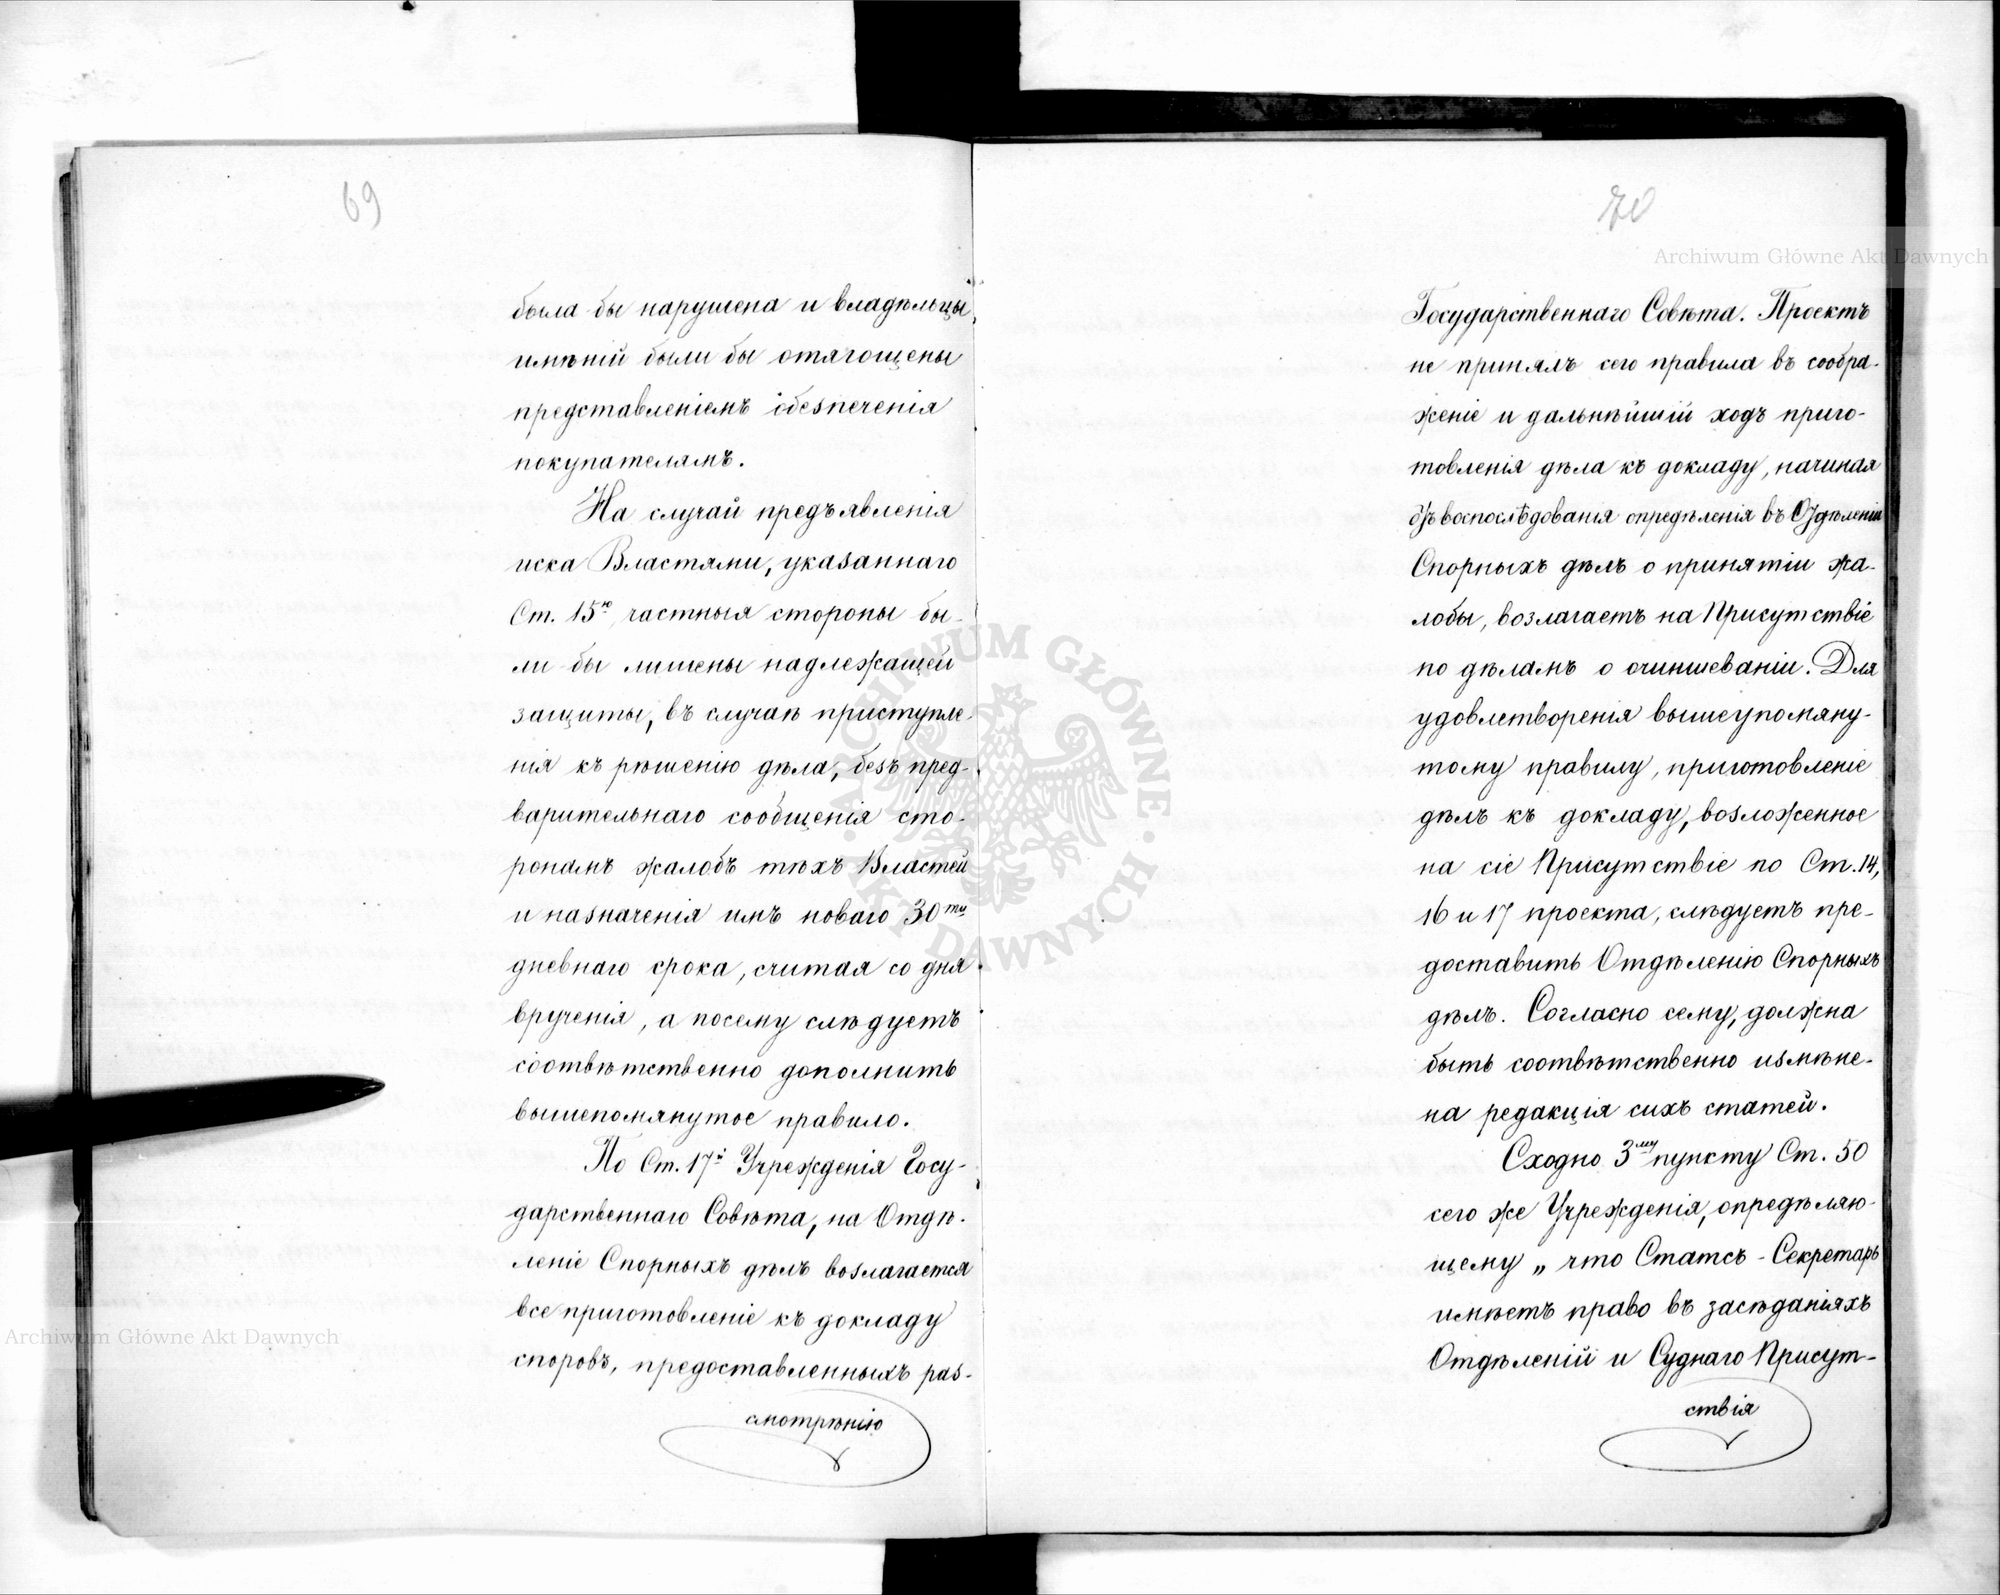 69
была бы нарушена и владѣльцы
имѣній были бы отягощены
представленіемъ обезпеченія
покупателямъ.
На случай предъявленія
иска Властями, указаннаго
Ст. 15ю, частныя стороны бы-
ли бы лишены надлежащей
защиты, въ случаѣ приступле-
нія къ рѣшенію дѣла, безъ пред-
варительнаго сообщенія сто-
ронамъ жалобъ тѣхъ Властей
и назначенія имъ новаго 30ти
дневнаго срока, считая со дня
врученія, а посему слѣдуетъ
соотвѣтственно дополнить
вышепомянутое правило.
По Ст. 17й Учрежденія Госу-
дарственнаго Совѣта, на Отдѣ-
леніе Спорныхъ дѣлъ возлагается
все приготовленіе къ докладу
споровъ, предоставленныхъ раз-
смотрѣнію
70
Государственнаго Совѣта. Проектъ
не принялъ сего правила въ сообра-
женіе и дальнѣйшій ходъ приго-
товленія дѣла къ докладу, начиная
отъ воспослѣдованія опредѣленія въ Отдѣленіи
Спорныхъ дѣлъ о принятіи жа-
лобы, возлагаетъ на Присутствіе
по дѣламъ о очиншеваніи. Для
удовлетворенія вышеупомяну-
тому правилу, приготовленіе
дѣлъ къ докладу, возложенное
на сіе Присутствіе по Ст. 14,
16 и 17 проекта, слѣдуетъ пре-
доставить Отдѣленію Спорныхъ
дѣлъ. Согласно сему, должна
быть соотвѣтственно измѣне-
на редакція сихъ статей.
Сходно 3му пункту Ст. 50
сего же Учрежденія, опредѣляю-
щему „что Статсъ-Секретарь
имѣетъ право въ засѣданіяхъ
Отдѣленій и Суднаго Присут-
ствія
Archiwum Główne Akt Dawnych
Archiwum Główne Akt Dawnych
ARCHIWUM GŁÓWNE · AKT DAWNYCH ·